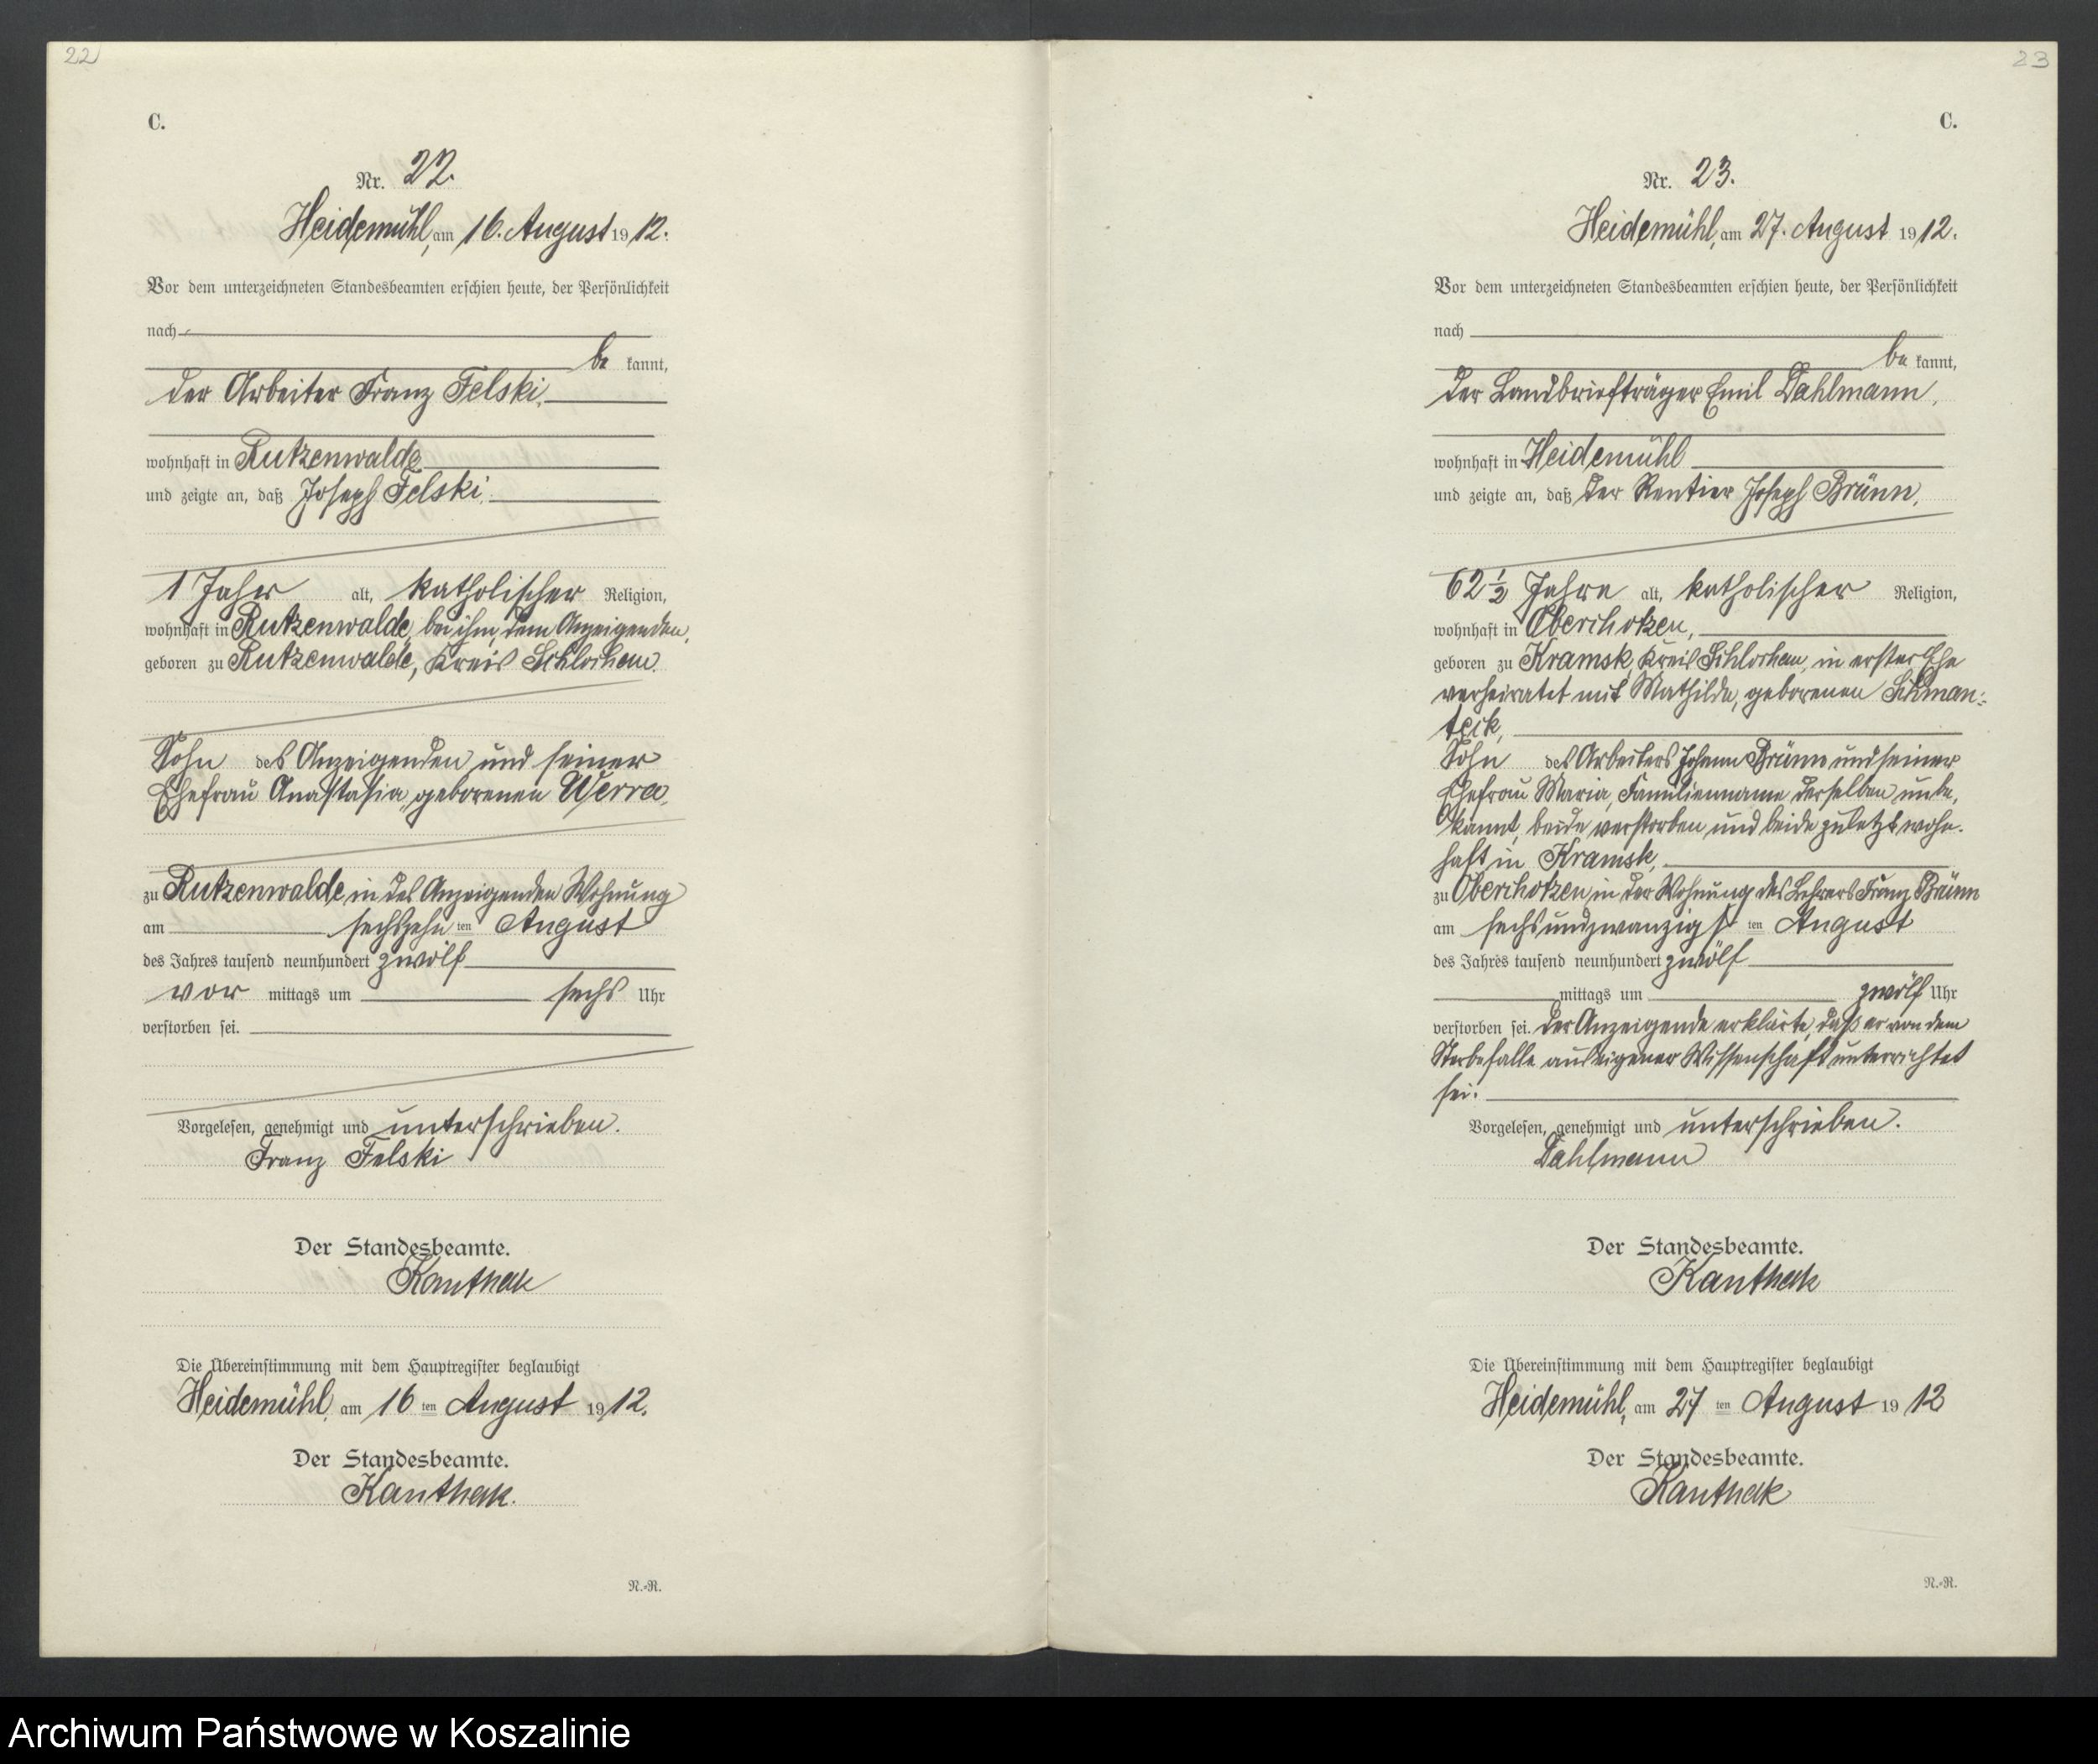 22
C.
Nr. 22.
Heidemühl, am 16. August 1912.
Vor dem unterzeichneten Standesbeamten erschien heute, der Persönlichkeit
nach
be kannt,
der Arbeiter Franz Felski,
wohnhaft in Rutzenwalde
und zeigte an, daß Joseph Felski,
1 Jahr alt, katholischer Religion,
wohnhaft in Rutzenwalde, bei ihm, dem Anzeigenden,
geboren zu Rutzenwalde, Kreis Schlochau,
Sohn des Anzeigenden und seiner
Ehefrau Anastasia, geborenen Werra,
zu Rutzenwalde, in des Anzeigenden Wohnung
am sechszehn ten August
des Jahres tausend neunhundert zwölf
vor mittags um sechs Uhr
verstorben sei.
Vorgelesen, genehmigt und unterschrieben.
Franz Felski
Der Standesbeamte.
Kanthak
Die Übereinstimmung mit dem Hauptregister beglaubigt
Heidemühl, am 16 ten August 1912.
Der Standesbeamte.
Kanthak.
N.-R.
23
C.
Nr. 23.
Heidemühl, am 27. August 1912.
Vor dem unterzeichneten Standesbeamten erschien heute, der Persönlichkeit
nach
be kannt,
der Landbriefträger Emil Dahlmann,
wohnhaft in Heidemühl
und zeigte an, daß der Rentier Joseph Brünn,
62 1/2 Jahre alt, katholischer Religion,
wohnhaft in Oberchotzen,
geboren zu Kramsk, Kreis Schlochau, in erster Ehe
verheiratet mit Mathilde, geborenen Schman=
teck,
Sohn des Arbeiters Johann Brünn und seiner
Ehefrau Maria, Familienname derselben unbe,
kannt, beide verstorben und beide zuletzt wohn.
haft in Kramsk,
zu Oberchotzen, in der Wohnung des Lehrers Franz Brünn
am sechsundzwanzigs ten August
des Jahres tausend neunhundert zwölf
mittags um zwölf Uhr
verstorben sei. Der Anzeigende erklärte, daß er von dem
Sterbefalle aus eigener Wissenschaft unterrichtet
sei.
Vorgelesen, genehmigt und unterschrieben.
Dahlmann
Der Standesbeamte.
Kanthak
Die Übereinstimmung mit dem Hauptregister beglaubigt
Heidemühl, am 27 ten August 1912
Der Standesbeamte.
Kanthak
N.-R.
Archiwum Państwowe w Koszalinie